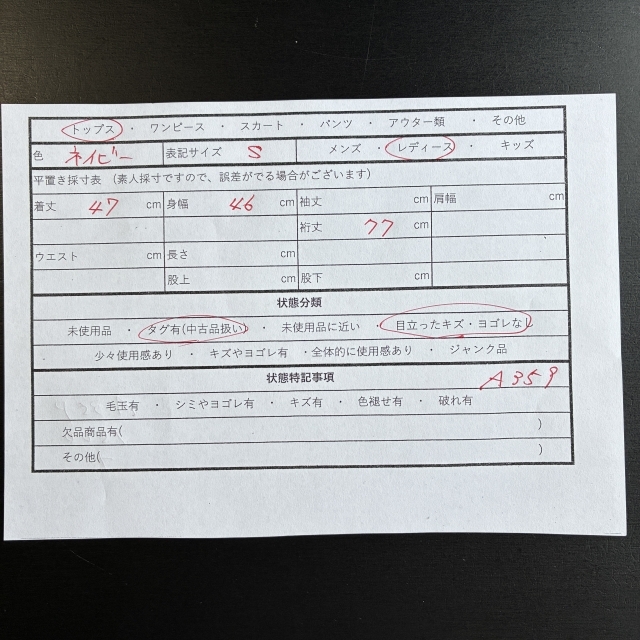 トップス ・ ワンピース ・ スカート ・ パンツ ・ アウター類 ・ その他
色 ネイビー 表記サイズ S メンズ ・ レディース ・ キッズ
平置き採寸表 （素人採寸ですので、誤差がでる場合がございます）
着丈 47 cm 身幅 46 cm 袖丈 cm 肩幅 cm
裄丈 77 cm
ウエスト cm 長さ cm
股上 cm 股下 cm
状態分類
未使用品 ・ タグ有(中古品扱い) ・ 未使用品に近い ・ 目立ったキズ・ヨゴレなし
少々使用感あり ・ キズやヨゴレ有 ・全体的に使用感あり ・ ジャンク品
状態特記事項 A359
毛玉有 ・ シミやヨゴレ有 ・ キズ有 ・ 色褪せ有 ・ 破れ有
欠品商品有( )
その他( )